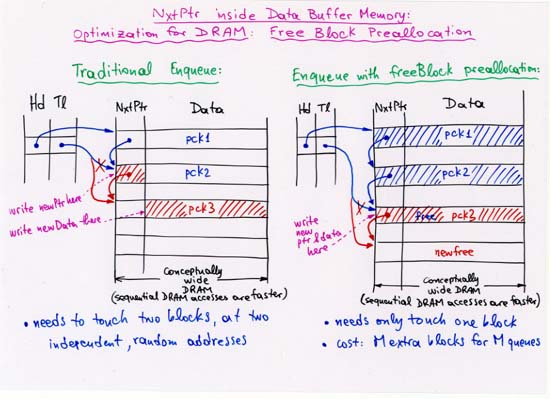 NxtPtr inside Data Buffer Memory:
Optimization for DRAM: Free Block Preallocation
Traditional Enqueue:
Hd Tl NxtPtr Data
pck1
pck2
write newPtr here
write newData here
pck3
conceptually
wide DRAM
(sequential DRAM accesses are faster)
• needs to touch two blocks, at two
independent, random addresses
Enqueue with freeBlock preallocation:
Hd Tl NxtPtr Data
pck1
pck2
write
new
ptr & data
here
free pck3
newfree
conceptually
wide DRAM
(sequential DRAM accesses are faster)
• needs only touch one block
• cost: M extra blocks for M queues